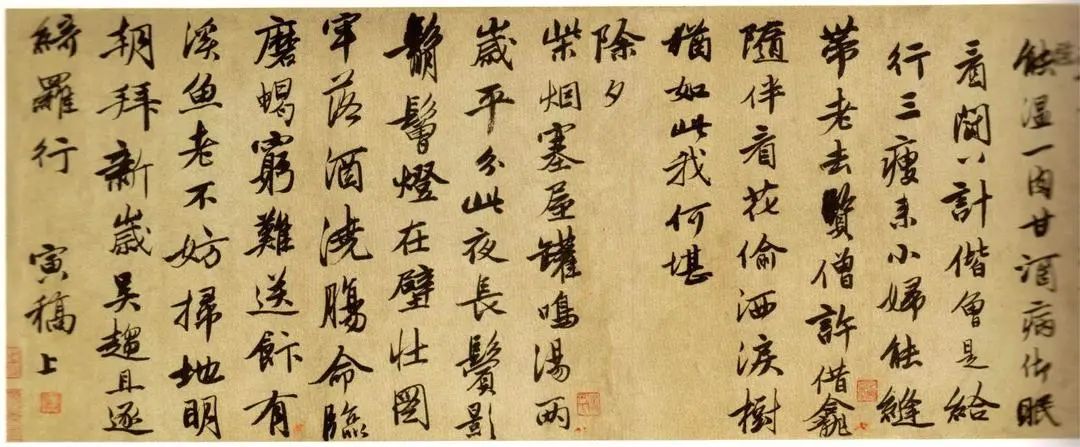 能温一肉甘酒病眠
看閙計偕曾是給
行三瘦来小婦能縫
帶老去賢僧許借龕
隨伴看花偷洒淚樹
猶如此我何堪
除夕
柴烟塞屋罐鳴湯兩
歲平分此夜長鬢影
鬅鬙燈在壁壮圖
牢落酒澆腸命臨
磨蝎窮難送飰有
溪魚老不妨掃地明
朝拜新歲吳趨且逐
綺羅行 寅稿上